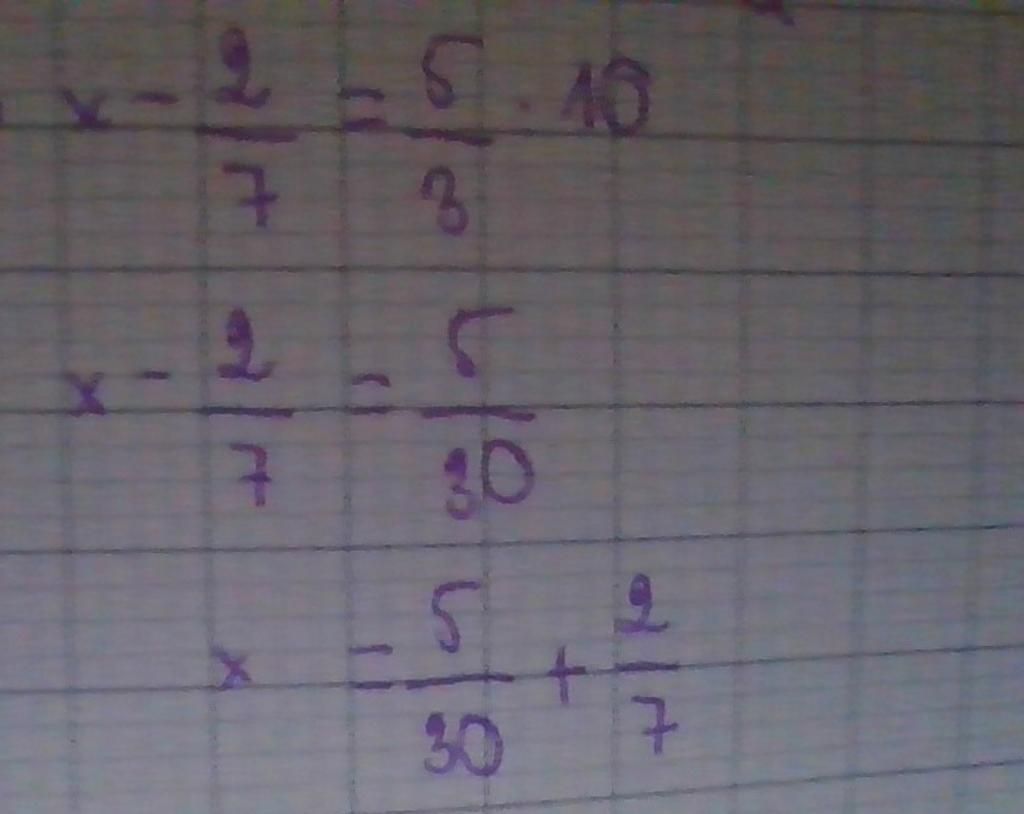 x - 2/7 = 5/3 · 10
x - 2/7 = 5/30
x = 5/30 + 2/7